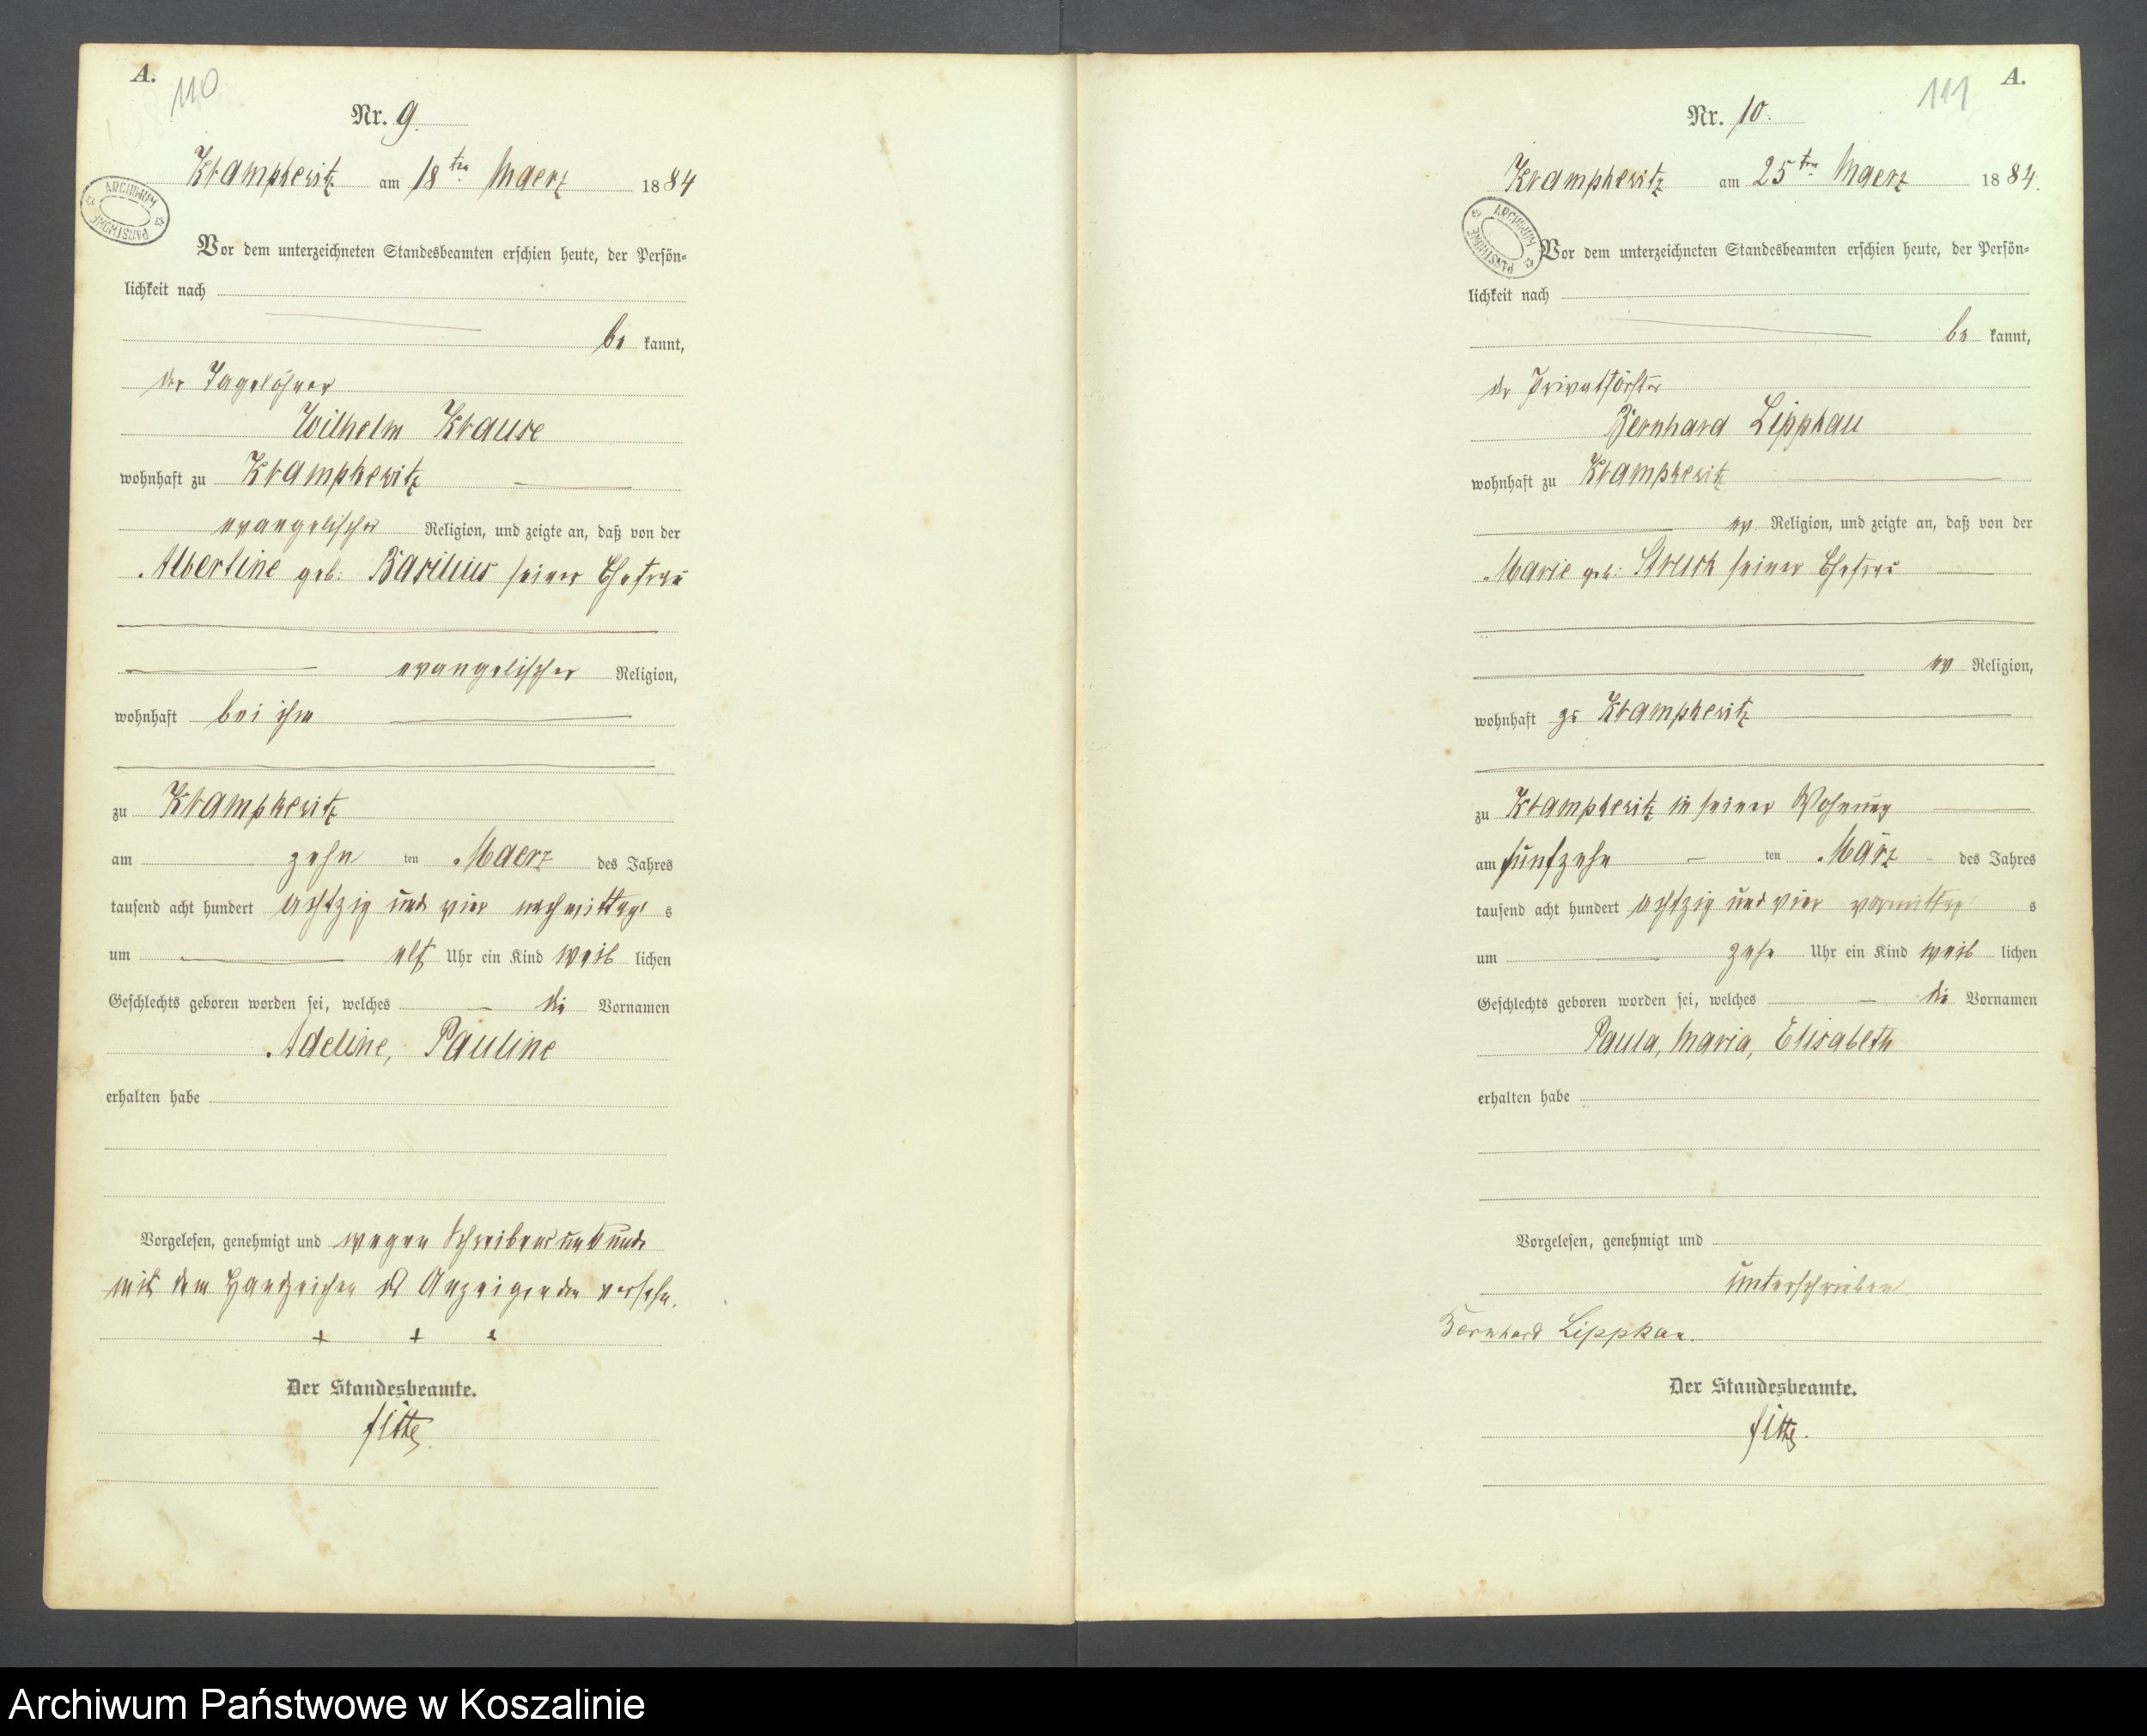 A.
110
Nr. 9.
Krampkewitz am 18ten Maerz 1884
ARCHIWUM PAŃSTWOWE
Vor dem unterzeichneten Standesbeamten erschien heute, der Persön=
lichkeit nach
be kannt,
der Tagelöhner
Wilhelm Krause
wohnhaft zu Krampkewitz
evangelischer Religion, und zeigte an, daß von der
Albertine geb: Basilius seiner Ehefrau
evangelischer Religion,
wohnhaft bei ihm
zu Krampkewitz
am zehn ten Maerz des Jahres
tausend acht hundert achtzig und vier nachmittag s
um elf Uhr ein Kind weib lichen
Geschlechts geboren worden sei, welches die Vornamen
Adeline, Pauline
erhalten habe
Vorgelesen, genehmigt und wegen Schreibensunkunde
mit dem Handzeichen des Anzeigenden versehn.
+ + +
Der Standesbeamte.
A.
111
Nr. 10.
Krampkewitz am 25ten Maerz 1884.
ARCHIWUM PAŃSTWOWE
Vor dem unterzeichneten Standesbeamten erschien heute, der Persön=
lichkeit nach
be kannt,
der Privatförster
Bernhard Lippkau
wohnhaft zu Krampkewitz
ev Religion, und zeigte an, daß von der
Marie geb: Struck seiner Ehefrau
ev Religion,
wohnhaft zu Krampkewitz
zu Krampkewitz in seiner Wohnung
am fünfzehn ten März des Jahres
tausend acht hundert achtzig und vier vormittag s
um zehn Uhr ein Kind weib lichen
Geschlechts geboren worden sei, welches die Vornamen
Paula, Maria, Elisabeth
erhalten habe
Vorgelesen, genehmigt und
unterschrieben
Bernhard Lippkau.
Der Standesbeamte.
Archiwum Państwowe w Koszalinie